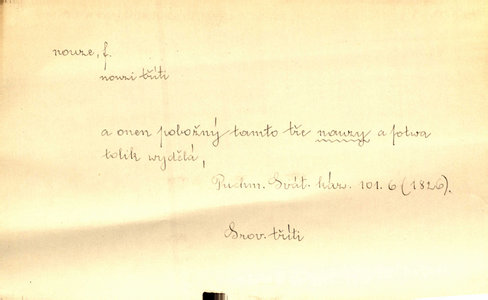 nouze, f.
nouzi tříti
a onen pobožný tamto tře nauzy a sotwa
tolik wydělá,
Puchm. Svát. káz. 101. 6 (1826).
Srov. tříti